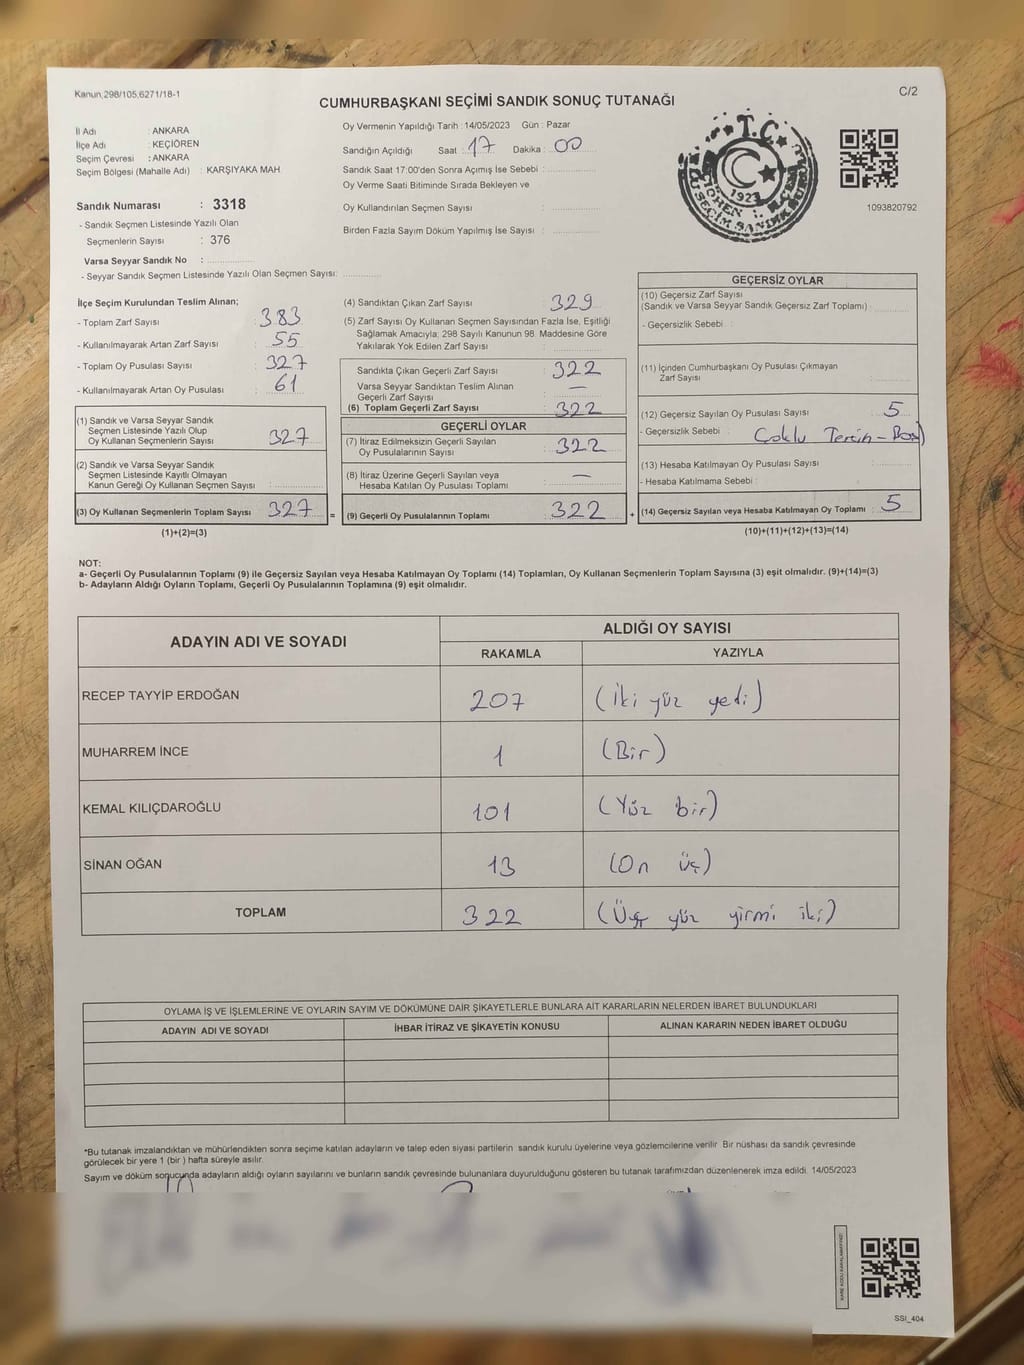 Kanun.298/105,6271/18-1
C/2
CUMHURBAŞKANI SEÇİMİ SANDIK SONUÇ TUTANAĞI
İl Adı : ANKARA
İlçe Adı : KEÇİÖREN
Seçim Çevresi : ANKARA
Seçim Bölgesi (Mahalle Adı) : KARŞIYAKA MAH
Sandık Numarası : 3318
- Sandık Seçmen Listesinde Yazılı Olan
Seçmenlerin Sayısı : 376
Varsa Seyyar Sandık No :
- Seyyar Sandık Seçmen Listesinde Yazılı Olan Seçmen Sayısı:
Oy Vermenin Yapıldığı Tarih : 14/05/2023 Gün : Pazar
Sandığın Açıldığı Saat : 17 Dakika : 00
Sandık Saat 17:00'den Sonra Açımış İse Sebebi :
Oy Verme Saati Bitiminde Sırada Bekleyen ve
Oy Kullandırılan Seçmen Sayısı :
Birden Fazla Sayım Döküm Yapılmış İse Sayısı :
T.C.
1923
1093820792
İlçe Seçim Kurulundan Teslim Alınan;
- Toplam Zarf Sayısı : 383
- Kullanılmayarak Artan Zarf Sayısı : 55
- Toplam Oy Pusulası Sayısı : 327
- Kullanılmayarak Artan Oy Pusulası : 61
(1) Sandık ve Varsa Seyyar Sandık
Seçmen Listesinde Yazılı Olup
Oy Kullanan Seçmenlerin Sayısı : 327
(2) Sandık ve Varsa Seyyar Sandık
Seçmen Listesinde Kayıtlı Olmayan
Kanun Gereği Oy Kullanan Seçmen Sayısı :
(3) Oy Kullanan Seçmenlerin Toplam Sayısı : 327 =
(1)+(2)=(3)
(4) Sandıktan Çıkan Zarf Sayısı : 329
(5) Zarf Sayısı Oy Kullanan Seçmen Sayısından Fazla İse, Eşitliği
Sağlamak Amacıyla; 298 Sayılı Kanunun 98. Maddesine Göre
Yakılarak Yok Edilen Zarf Sayısı :
Sandıkta Çıkan Geçerli Zarf Sayısı : 322
Varsa Seyyar Sandıktan Teslim Alınan
Geçerli Zarf Sayısı : —
(6) Toplam Geçerli Zarf Sayısı : 322
GEÇERLİ OYLAR
(7) İtiraz Edilmeksizin Geçerli Sayılan
Oy Pusulalarının Sayısı : 322
(8) İtiraz Üzerine Geçerli Sayılan veya
Hesaba Katılan Oy Pusulası Toplamı : —
(9) Geçerli Oy Pusulalarının Toplamı : 322 +
GEÇERSİZ OYLAR
(10) Geçersiz Zarf Sayısı
(Sandık ve Varsa Seyyar Sandık Geçersiz Zarf Toplamı) :
- Geçersizlik Sebebi :
(11) İçinden Cumhurbaşkanı Oy Pusulası Çıkmayan
Zarf Sayısı :
(12) Geçersiz Sayılan Oy Pusulası Sayısı : 5
- Geçersizlik Sebebi : Çoklu Tercih - Boş
(13) Hesaba Katılmayan Oy Pusulası Sayısı :
- Hesaba Katılmama Sebebi :
(14) Geçersiz Sayılan veya Hesaba Katılmayan Oy Toplamı : 5
(10)+(11)+(12)+(13)=(14)
NOT:
a- Geçerli Oy Pusulalarının Toplamı (9) ile Geçersiz Sayılan veya Hesaba Katılmayan Oy Toplamı (14) Toplamları, Oy Kullanan Seçmenlerin Toplam Sayısına (3) eşit olmalıdır. (9)+(14)=(3)
b- Adayların Aldığı Oyların Toplamı, Geçerli Oy Pusulalarının Toplamına (9) eşit olmalıdır.
ADAYIN ADI VE SOYADI
ALDIĞI OY SAYISI
RAKAMLA YAZIYLA
RECEP TAYYİP ERDOĞAN 207 (İki yüz yedi)
MUHARREM İNCE 1 (Bir)
KEMAL KILIÇDAROĞLU 101 (Yüz bir)
SİNAN OĞAN 13 (On üç)
TOPLAM 322 (Üç yüz yirmi iki)
OYLAMA İŞ VE İŞLEMLERİNE VE OYLARIN SAYIM VE DÖKÜMÜNE DAİR ŞİKAYETLERLE BUNLARA AİT KARARLARIN NELERDEN İBARET BULUNDUKLARI
ADAYIN ADI VE SOYADI İHBAR İTİRAZ VE ŞİKAYETİN KONUSU ALINAN KARARIN NEDEN İBARET OLDUĞU
*Bu tutanak imzalandıktan ve mühürlendikten sonra seçime katılan adayların ve talep eden siyasi partilerin sandık kurulu üyelerine veya gözlemcilerine verilir. Bir nüshası da sandık çevresinde
görülecek bir yere 1 (bir ) hafta süreyle asılır.
Sayım ve döküm sonucunda adayların aldığı oyların sayılarını ve bunların sandık çevresinde bulunanlara duyurulduğunu gösteren bu tutanak tarafımızdan düzenlenerek imza edildi. 14/05/2023
SSİ_404